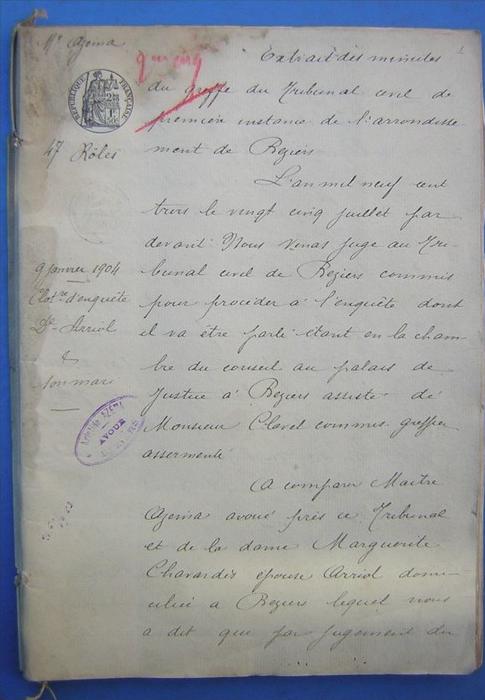 Me Azema
47 Rôles
9 Janvier 1904
Clotre d'enquête
De Arriol
&
son mari
RÉPUBLIQUE FRANÇAISE
AVOUÉ
1
Extrait des minutes
du greffe du Tribunal civil de
première instance de l'arrondisse-
ment de Beziers
L'an mil neuf cent
trois le vingt cinq juillet par
devant Nous Venas juge au Tri-
bunal civil de Beziers commis
pour procéder à l'enquête dont
il va être parlé étant en la cham-
bre du conseil au palais de
Justice à Beziers assisté de
Monsieur Clavel commis greffier
assermenté
A comparu Maitre
Azema avoué près ce Tribunal
et de la dame Marguerite
Chavardès épouse Arriol domi-
ciliée a Beziers lequel nous
a dit que par jugement du